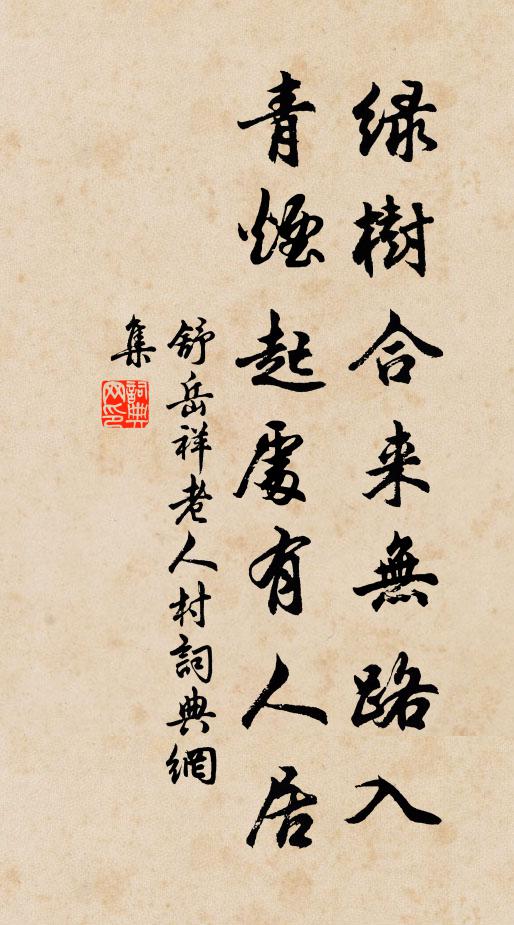 緑樹合来無路入
青煙起處有人居
舒岳祥老人村詞典網
集
詞典
网印